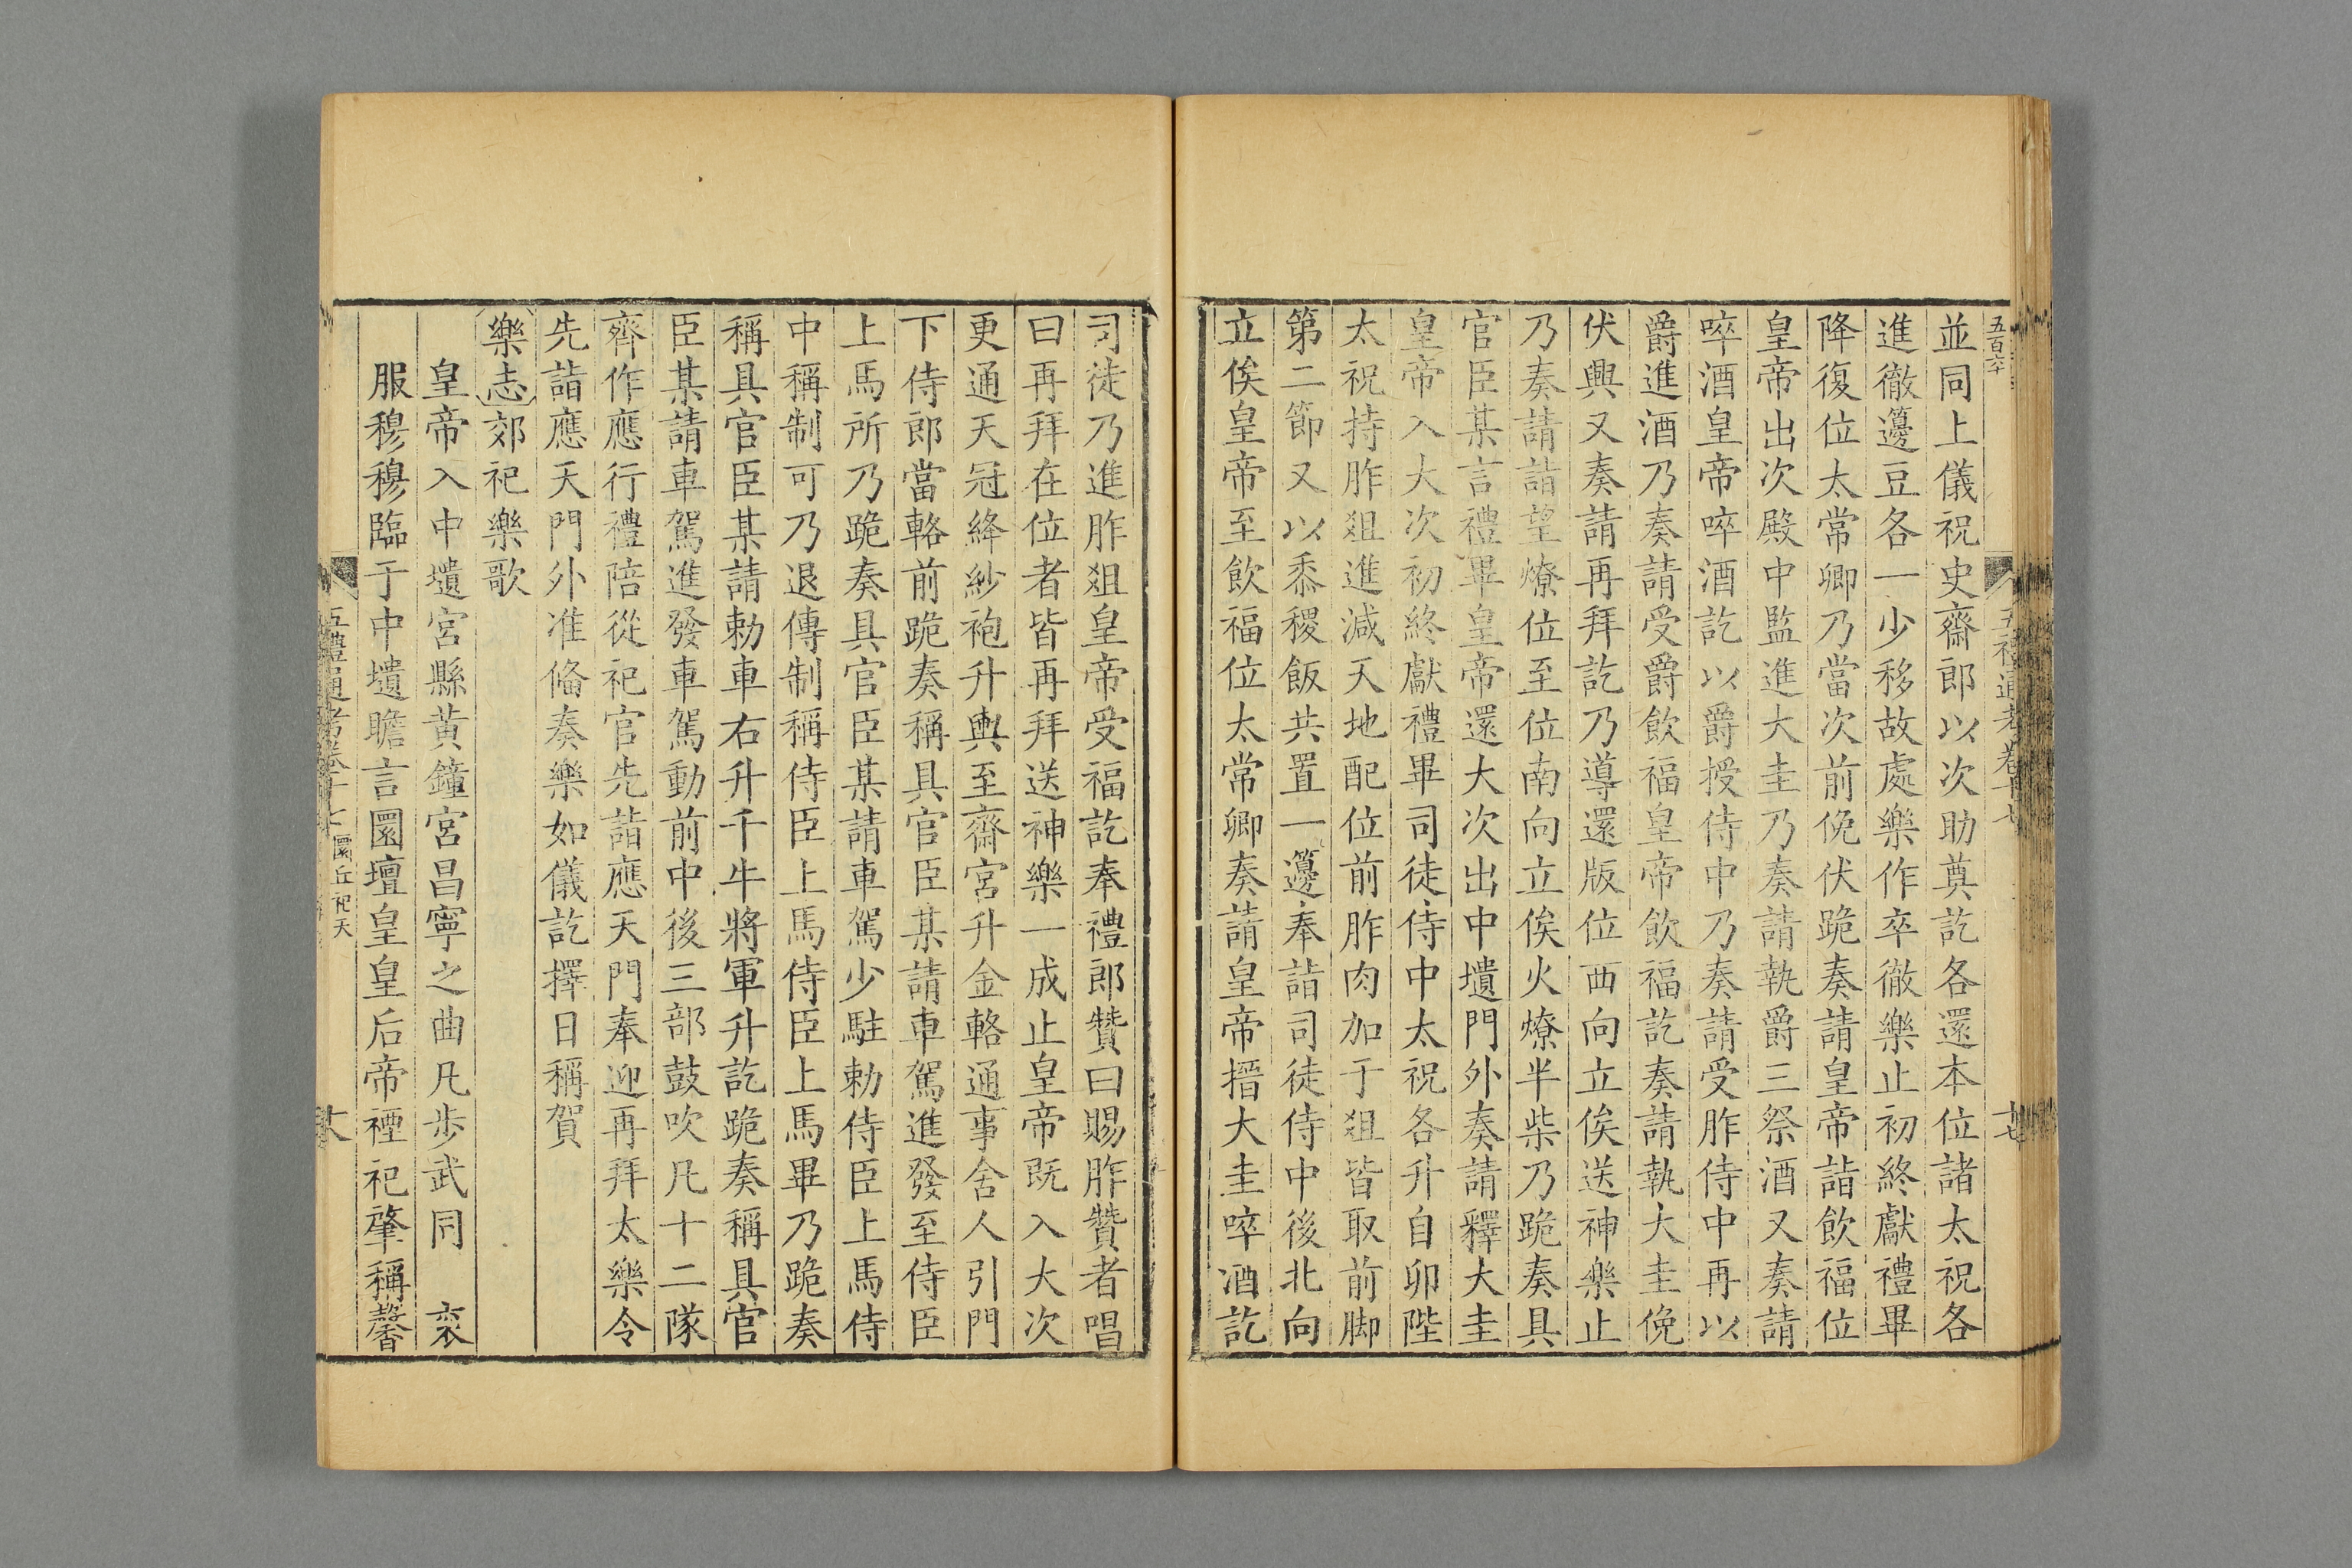 五百六
並同上儀祝史齋郎以次助奠訖各還本位諸太祝各
進徹籩豆各一少移故處樂作卒徹樂止初終獻禮畢
降復位太常卿乃當次前俛伏跪奏請皇帝詣飲福位
皇帝出次殿中監進大圭乃奏請執爵三祭酒又奏請
啐酒皇帝啐酒訖以爵授侍中乃奏請受胙侍中再以
爵進酒乃奏請受爵飲福皇帝飲福訖奏請執大圭俛
伏興又奏請再拜訖乃導還版位西向立俟送神樂止
乃奏請詣望燎位至位南向立俟火燎半柴乃跪奏具
官臣某言禮畢皇帝還大次出中壝門外奏請釋大圭
皇帝入大次初終獻禮畢司徒侍中太祝各升自卯陛
太祝持胙俎進減天地配位前胙肉加于俎皆取前脚
第二節又以黍稷飯共置一籩奉詣司徒侍中後北向
立俟皇帝至飲福位太常卿奏請皇帝搢大圭啐酒訖
司徒乃進胙俎皇帝受福訖奉禮郎贊曰賜胙贊者唱
曰再拜在位者皆再拜送神樂一成止皇帝既入大次
更通天冠絳紗袍升輿至齋宮升金輅通事舍人引門
下侍郎當輅前跪奏稱具官臣某請車駕進發至侍臣
上馬所乃跪奏具官臣某請車駕少駐勅侍臣上馬侍
中稱制可乃退傳制稱侍臣上馬侍臣上馬畢乃跪奏
稱具官臣某請勅車右升千牛將軍升訖跪奏稱具官
臣某請車駕進發車駕動前中後三部鼓吹凡十二隊
齊作應行禮陪從祀官先詣應天門奉迎再拜太樂令
先詣應天門外准俻奏樂如儀訖擇日稱賀
樂志郊祀樂歌
皇帝入中壝宮縣黃鐘宮昌寧之曲凡步武同　衮
服穆穆臨于中壝瞻言圜壇皇皇后帝禋祀肇稱馨
五禮通考卷十七　圜丘祀天